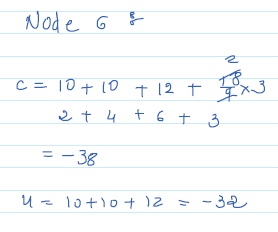 Node 6 :
2
c = 10 + 10 + 12 + 18/9 × 3
2 + 4 + 6 + 3
= -38
u = 10+10+12 = -32